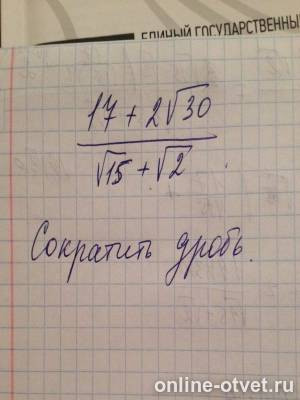 ЕДИНЫЙ ГОСУДАРСТВЕННЫЙ
17 + 2√30
√15 + √2
Сократить дробь.
online-otvet.ru